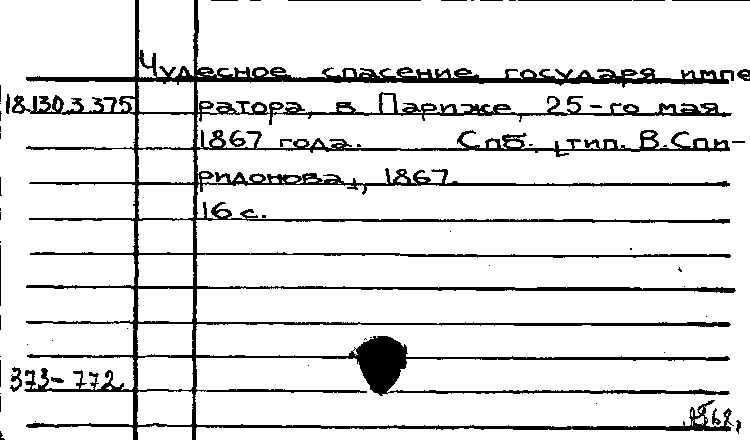 Чудесное спасение государя импе
18.130.3.375 ратора, в Париже, 25-го мая
1867 года. Спб. [тип. В.Спи-
ридонова], 1867.
16 с.
373-772